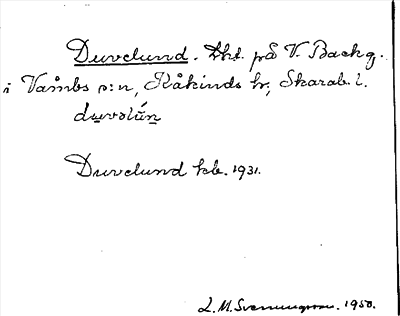 Duvelund. Lht. på V. Backg.
i Våmbs s:n, Kåkinds hr, Skarab. l.
duvəlún
Duvelund kb. 1931.
L. M. Svenungsson. 1950.